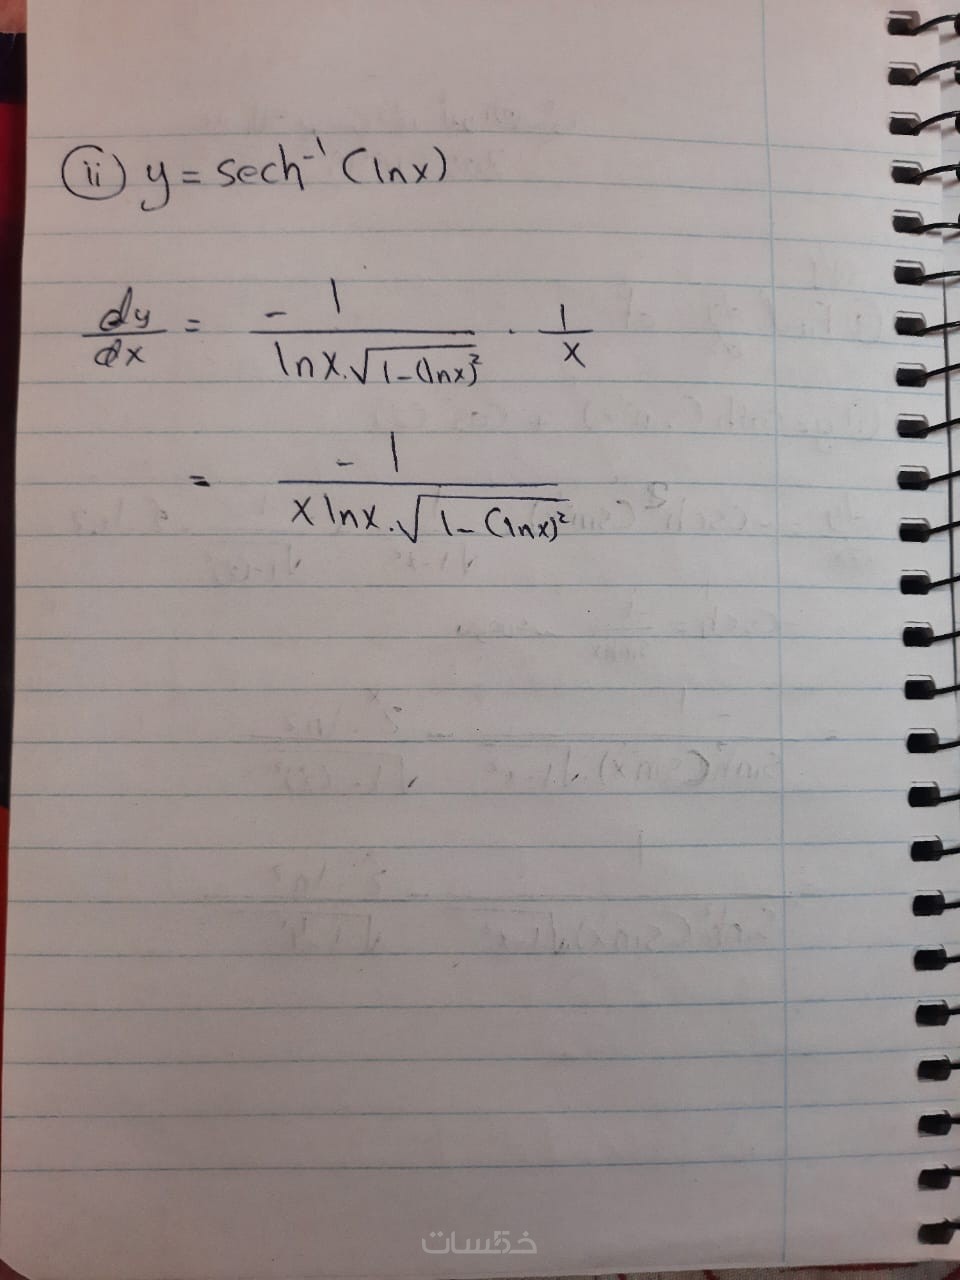 (ii) y = sech⁻¹ (lnx)
dy/dx = -1/(lnx.√(1-(lnx)²)) . 1/x
= -1/(x lnx.√(1-(lnx)²))
خمسات